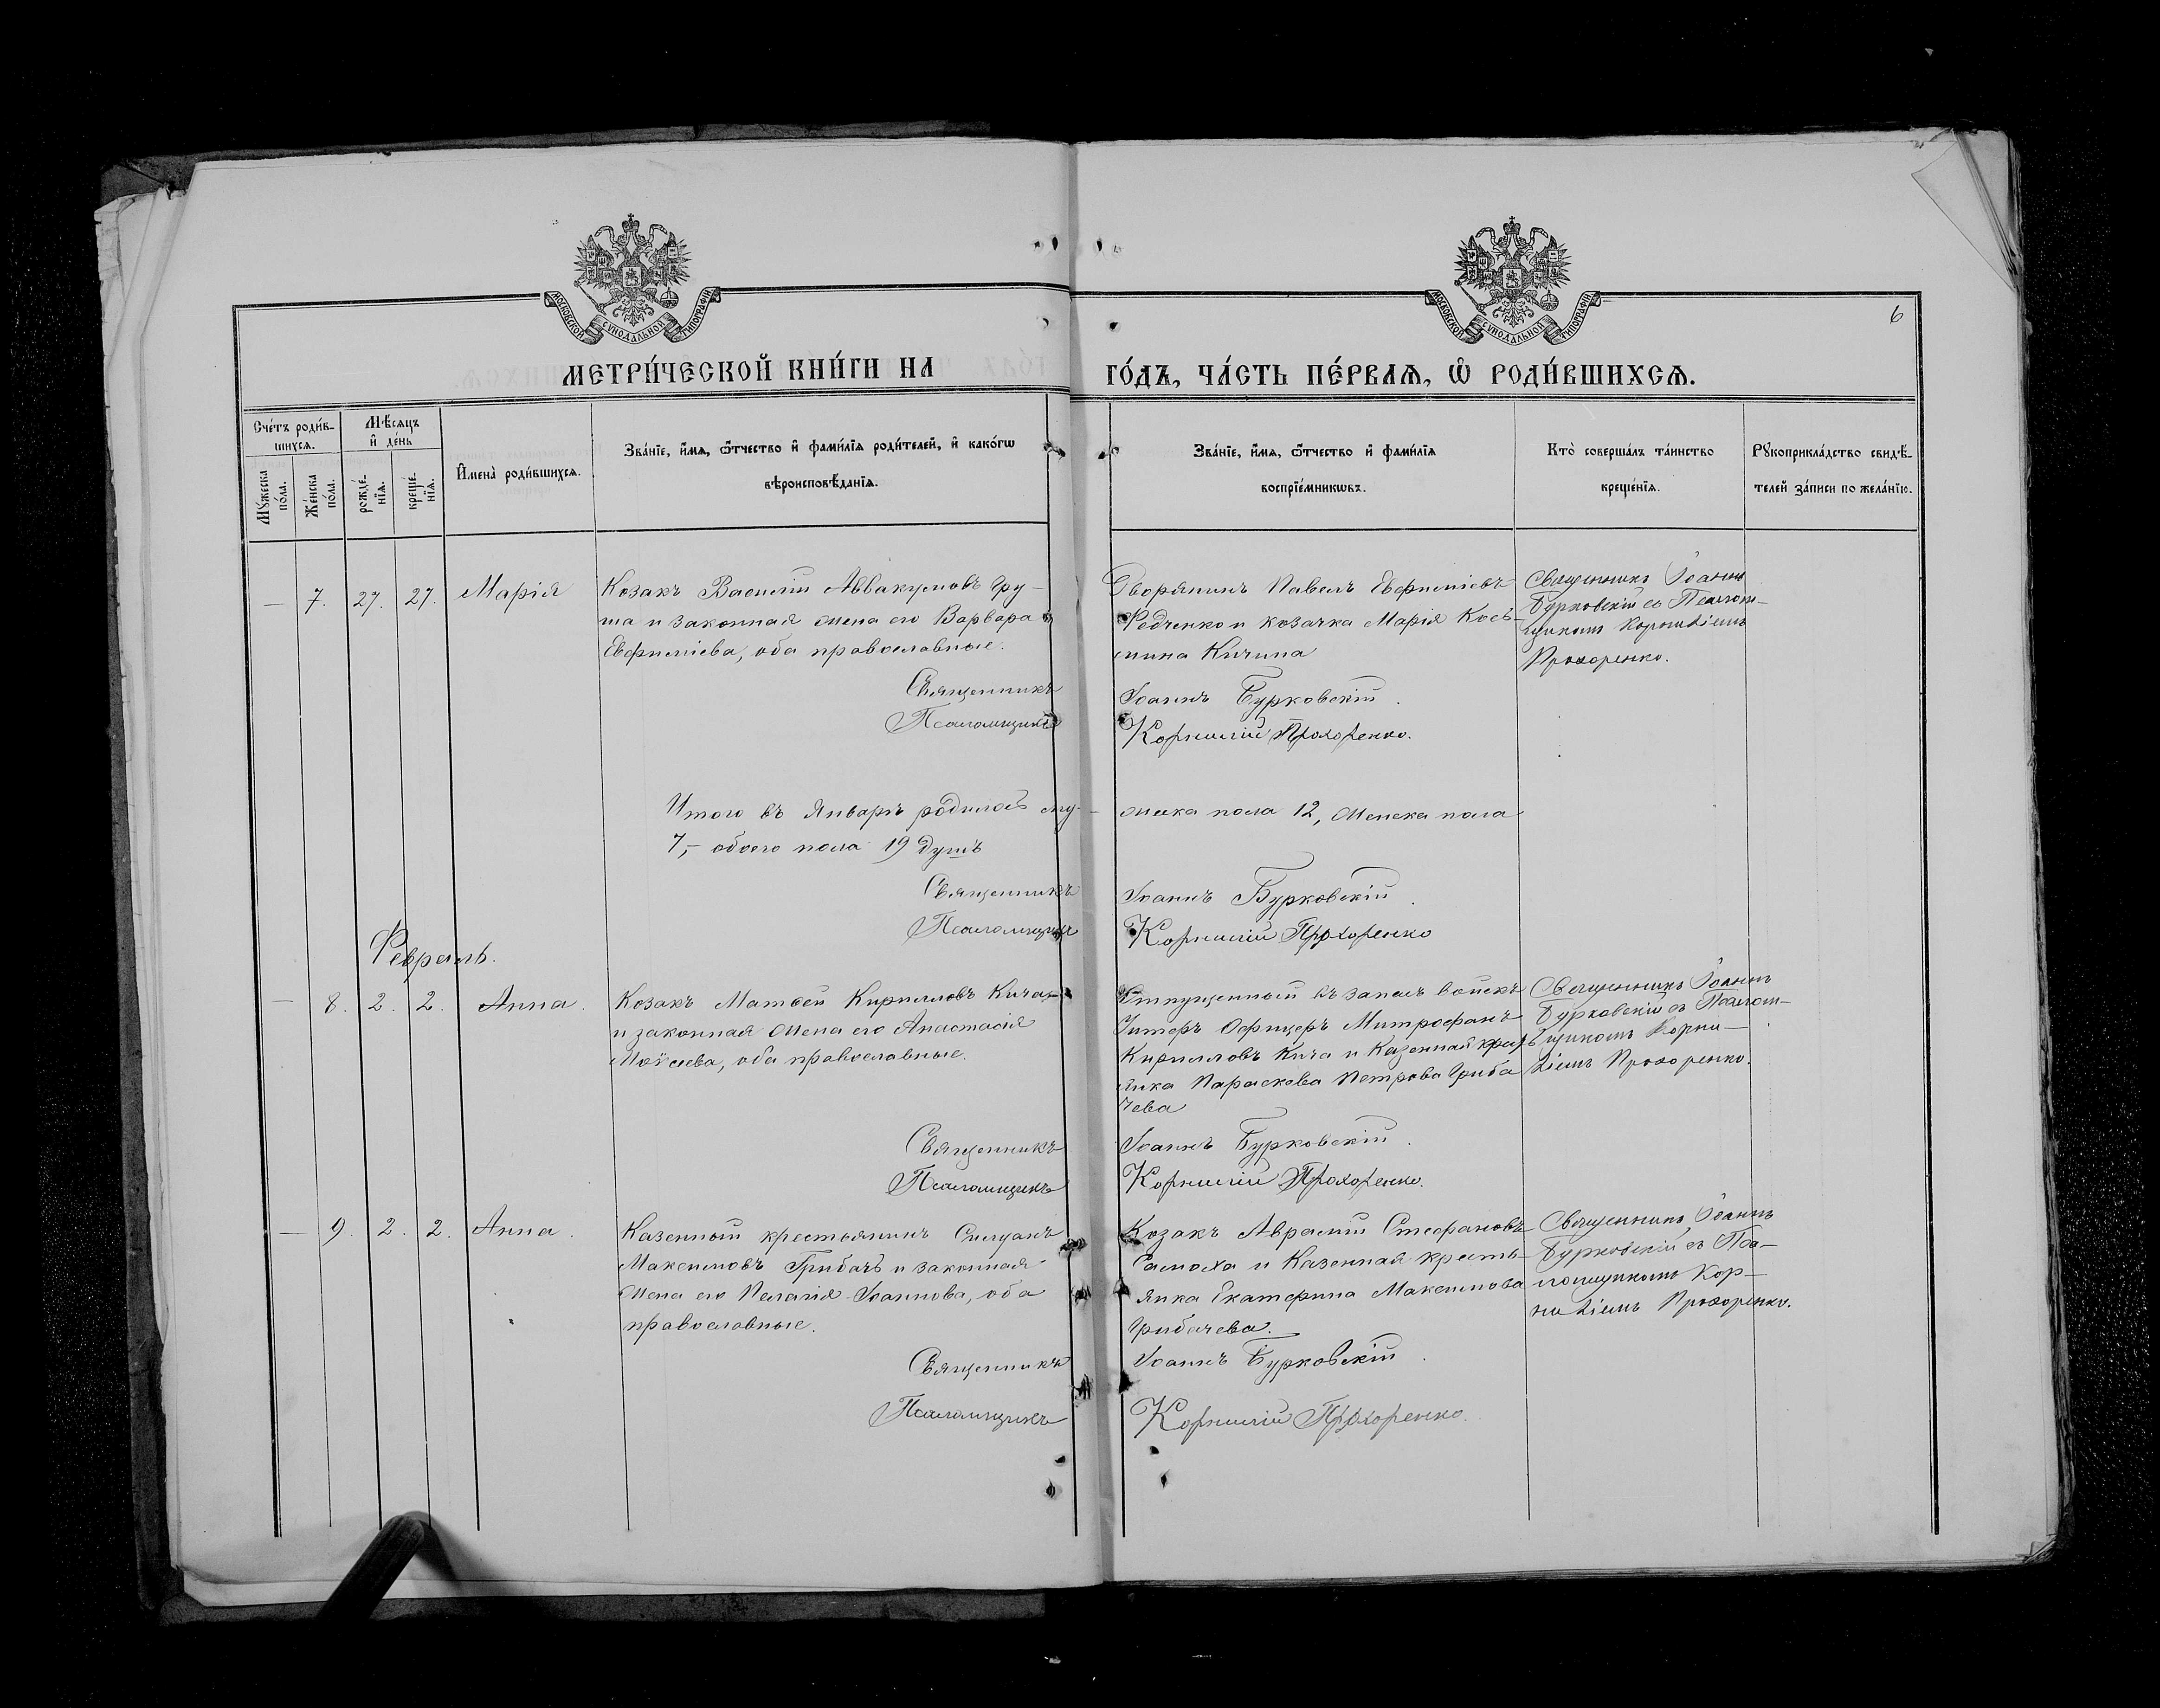 МОСКОВСКОЙ СѴНОДАЛЬНОЙ ТИПОГРАФІИ
МОСКОВСКОЙ СѴНОДАЛЬНОЙ ТИПОГРАФІИ
6
МЕТРИ́ЧЕСКОЙ КНИ́ГИ НА
ГО́ДЪ, ЧА́СТЬ ПЕ́РВАѦ, Ѽ РОДИ́ВШИХСѦ.
Сче́тъ роди́в-
шихсѧ.
Мѣ́сѧцъ
и҆ де́нь
Мꙋ́жеска
по́ла.
Же́нска
по́ла.
рожде́-
нїѧ.
креще́-
нїѧ.
И҆мена̀ роди́вшихсѧ.
Зва́нїе, и҆́мѧ, ѻ҆́тчество и҆ фами́лїѧ роди́телей, и҆ како́гѡ
вѣроисповѣ́данїѧ.
Зва́нїе, и҆́мѧ, ѻ҆́тчество и҆ фами́лїѧ
воспрїе́мникѡвъ.
Кто̀ соверша́лъ та́инство
креще́нїѧ.
Рꙋкоприкла́дство свидѣ́-
телей за́писи по жела́нїю.
— 7. 27. 27. Марія
Козакъ Василій Аввакумовъ Гру-
ша и законная жена его Варвара
Евфиміева, оба православные.
Дворянинъ Павелъ Евфиміевъ
Редченко и козачка Марія Кось-
мина Кичина
Священникъ Іоаннъ
Бурковскій съ Псалом-
щикомъ Корниліемъ
Прохоренко.
Священникъ Іоаннъ Бурковскій.
Псаломщикъ Корнилій Прохоренко.
Итого въ Январѣ родилось му-
жеска пола 12, женска пола
7, – обоего пола 19 душъ
Священникъ Іоаннъ Бурковскій.
Псаломщикъ Корнилій Прохоренко
Февраль.
— 8. 2. 2. Анна.
Козакъ Матѳей Кирилловъ Кича
и законная жена его Анастасія
Моѵсеева, оба православные.
Отпущенный въ запасъ войскъ
Унтеръ Офицеръ Митрофанъ
Кирилловъ Кича и Казенная кресть
янка Параскева Петрова Гриба
чева
Священникъ Іоаннъ
Бурковскій съ Псалом-
щикомъ Корни-
ліемъ Прохоренко.
Священникъ Іоаннъ Бурковскій.
Псаломщикъ Корнилій Прохоренко.
— 9. 2. 2. Анна.
Казенный крестьянинъ Силуанъ
Максимовъ Грибачъ и законная
жена его Пелагія Іоаннова, оба
православные.
Козакъ Аврамій Стефановъ
Самоха и Казенная кресть-
янка Екатерина Максимова
Грибачева.
Священникъ Іоаннъ
Бурковскій съ Пса-
ломщикомъ Кор-
ниліемъ Прохоренко.
Священникъ Іоаннъ Бурковскій.
Псаломщикъ Корнилій Прохоренко.